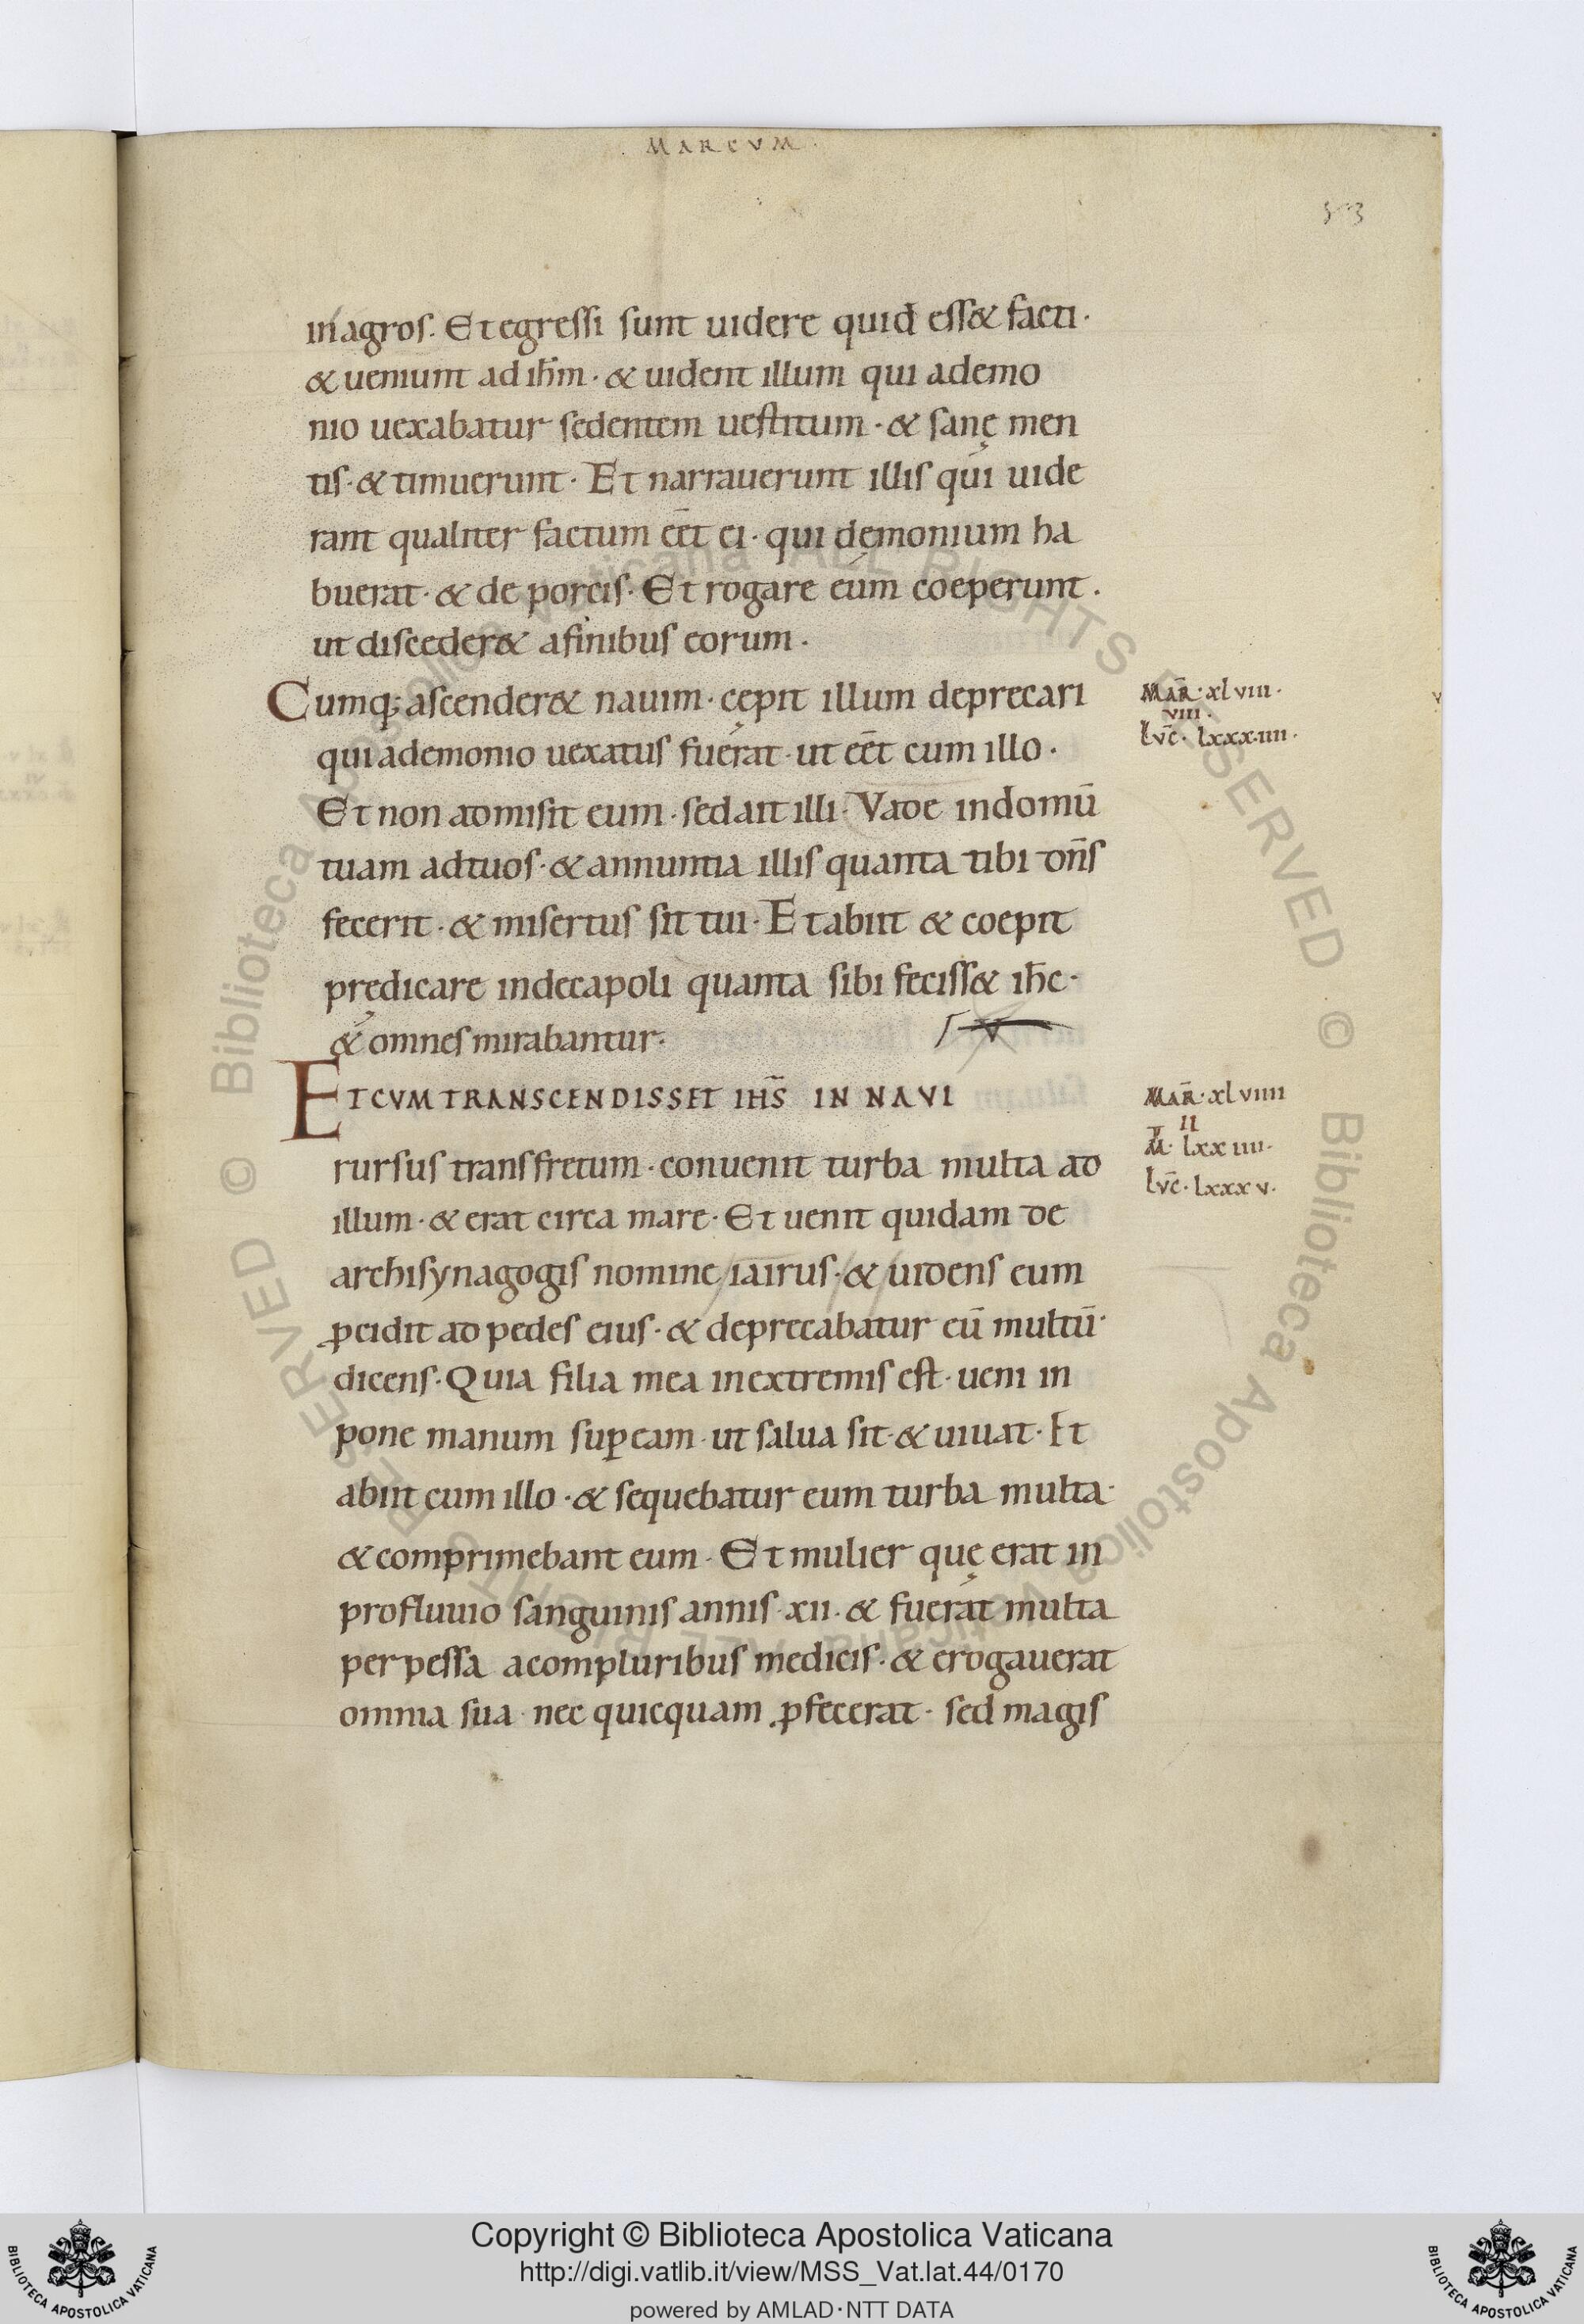 MARCVM
in agros. Et egressi sunt uidere quid ess& facti.
& ueniunt ad ih̅m. & uident illum qui ademo
nio uexabatur sedentem uestitum. & sanę men
tis. & timuerunt. Et narrauerunt illis qui uide
rant qualiter factum ee̅t ei. qui dęmonium ha
buerat. & de porcis. Et rogare eum coeperunt.
ut disceder& afinibus eorum.
Cumq; ascender& nauim. cępit illum deprecari
MAR̅. xlviii.
viii.
LVC̅. lxxxiiii.
qui ademonio uexatus fuerat. ut ee̅t cum illo.
Et non admisit eum. sed ait illi. Vade indomu̅
tuam adtuos. & annuntia illis quanta tibi dn̅s
fecerit. & misertus sit tui. Et abiit & coepit
prędicare indecapoli quanta sibi feciss& ih̅c.
& omnes mirabantur.
ETCVM TRANSCENDISSET IHS̅ IN NAVI
MAR̅. xlviiii
II
M̅. lxxiiii.
LVC̅. lxxxv.
rursus transfretum. conuenit turba multa ad
illum. & erat circa mare. Et uenit quidam de
archisynagogis nomine iairus. & uidens eum
ꝓcidit ad pedes eius. & deprecabatur eu̅ multu̅.
dicens. Quia filia mea inextremis est. ueni in
pone manum suꝑ eam. ut salua sit. & uiuat. Et
abiit cum illo. & sequebatur eum turba multa.
& comprimebant eum. Et mulier quę erat in
profluuio sanguinis annis. xii. & fuerat multa
perpessa acompluribus medicis. & erogauerat
omnia sua. nec quicquam ꝓfecerat. sed magis
© Biblioteca Apostolica Vaticana ALL RIGHTS RESERVED
© Biblioteca Apostolica Vaticana ALL RIGHTS RESERVED
Copyright © Biblioteca Apostolica Vaticana
http://digi.vatlib.it/view/MSS_Vat.lat.44/0170
powered by AMLAD·NTT DATA
BIBLIOTECA APOSTOLICA VATICANA
BIBLIOTECA APOSTOLICA VATICANA